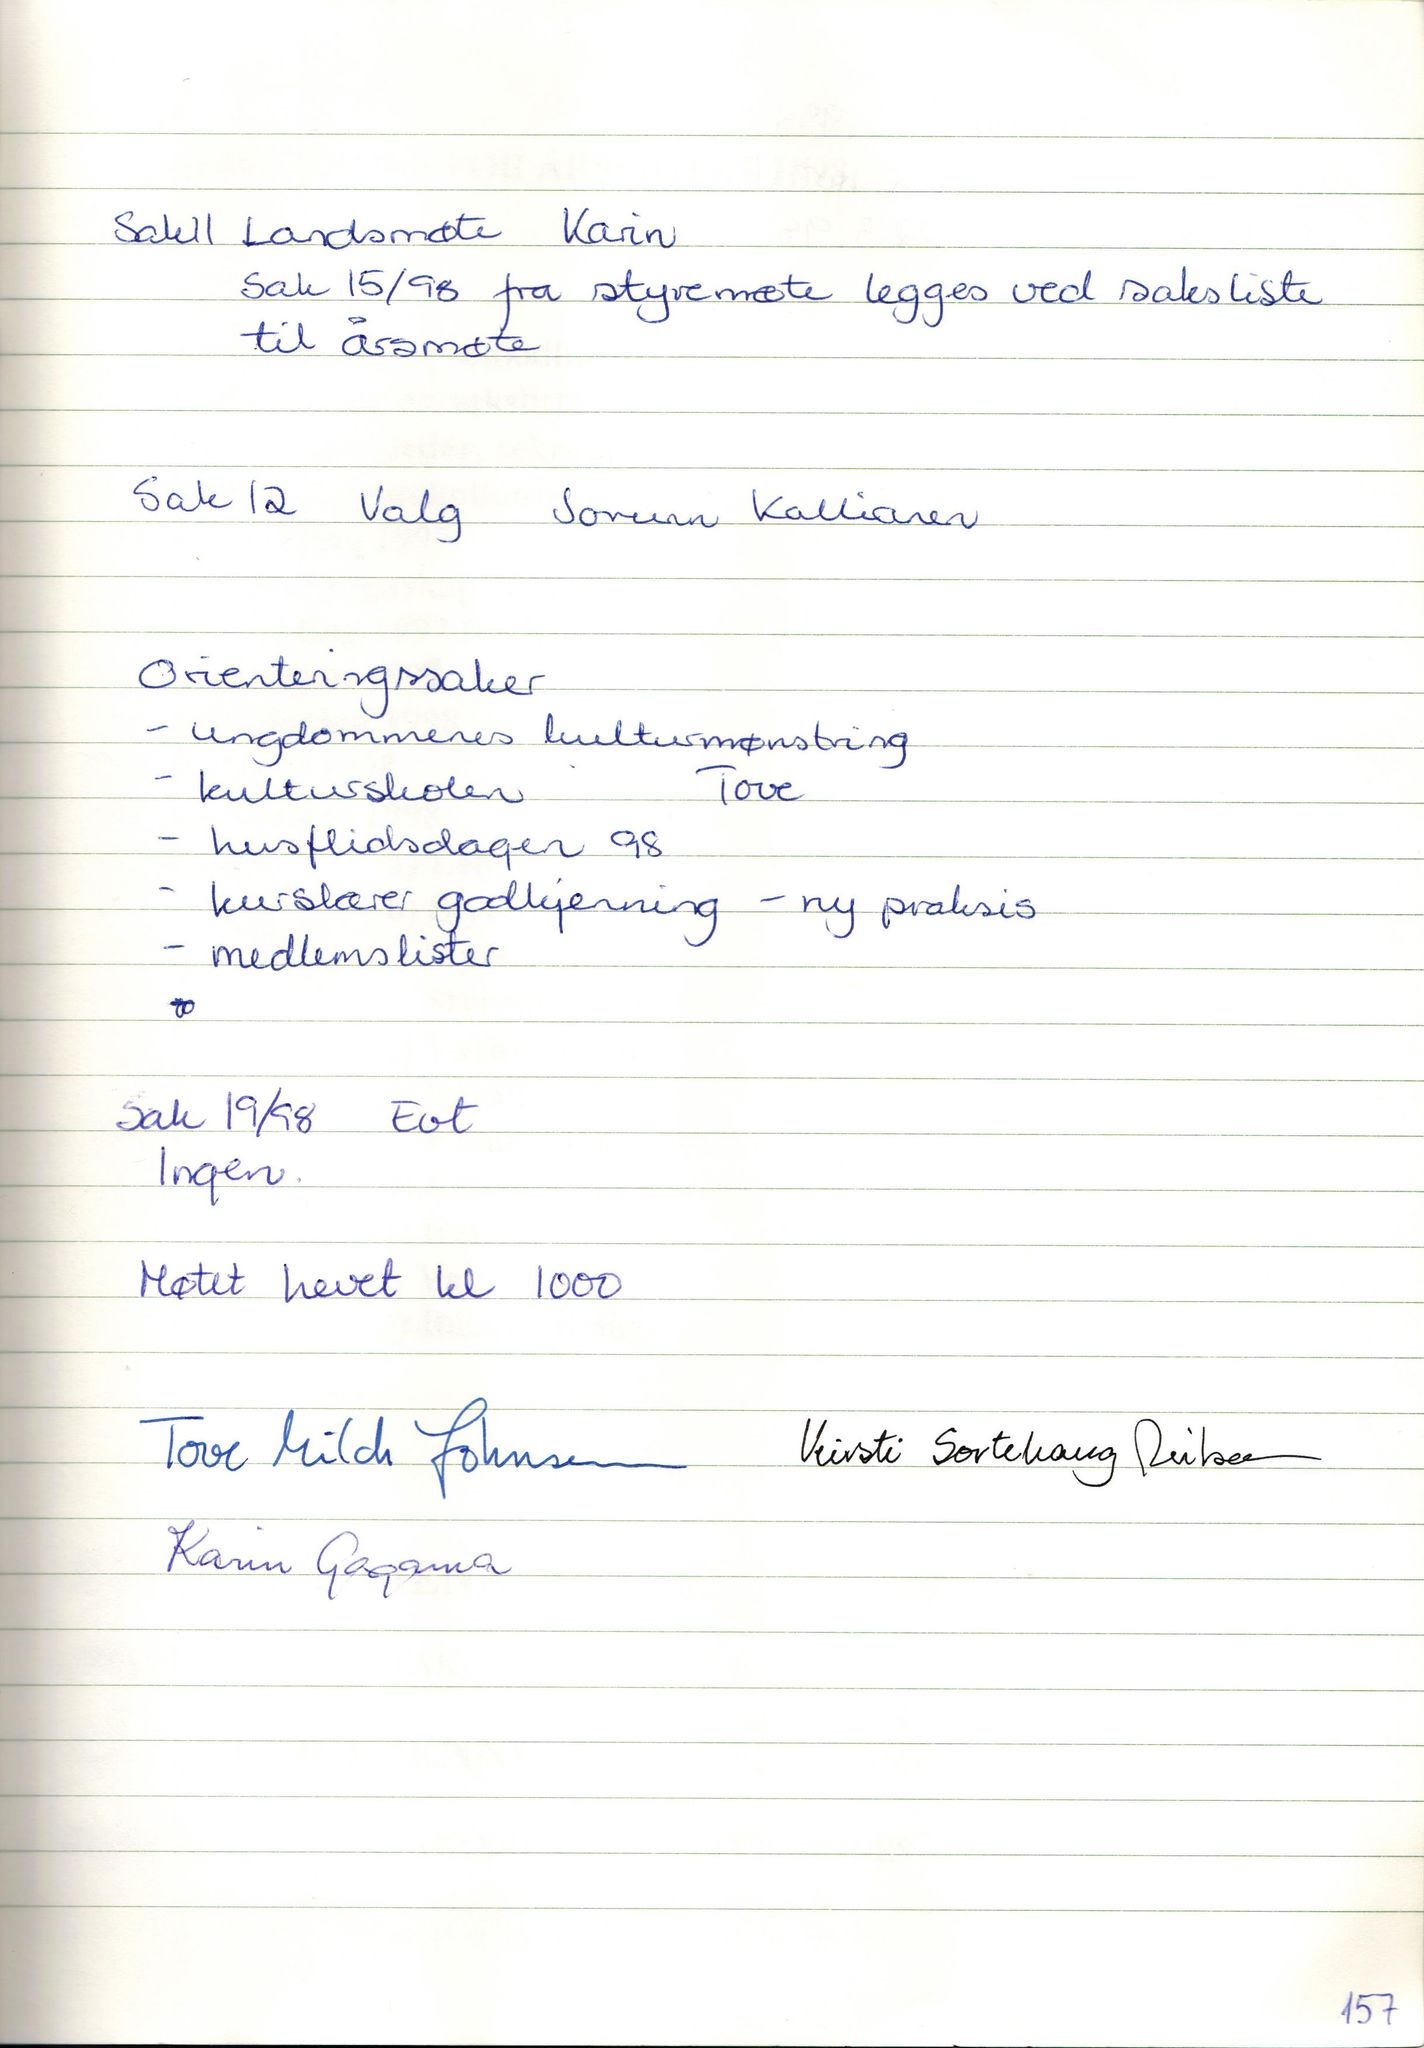 Sak 11 Landsmøte Karin
Sak 15/98 fra styremøte legges ved saksliste
til årsmøte
Sak 12 Valg Jorunn
Orienteringssaker
- ungdommenes kulturmønstring
- kulturskolen Tove
- husflidsdagen 98
- kurslærer godkjenning - ny praksis
- medlemslister
Sak 19/98 Evt
Ingen.
Møtet hevet kl 1000
Tove Milch Johnsen Kirsti Sortehaug
Karin
157